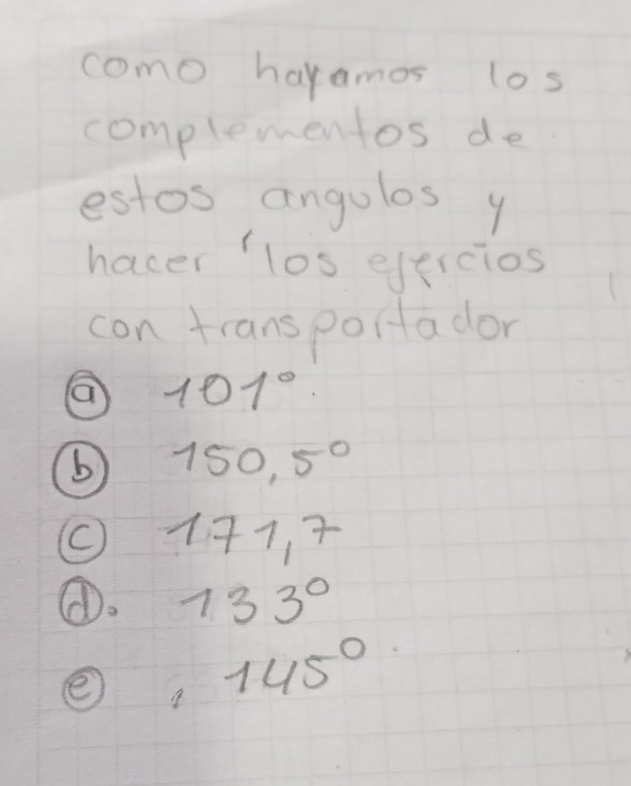 como hayamos los
complementos de
estos angulos y
hacer los ejercios
con transportador
a 101°
b 150,5°
c 171,7
d. 133°
e 145°